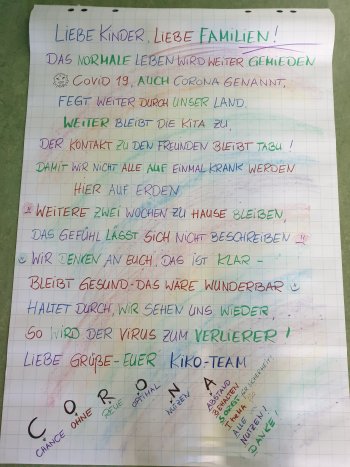 LIEBE KINDER, LIEBE FAMILIEN!
DAS NORMALE LEBEN WIRD WEITER GEMIEDEN
COVID 19, AUCH CORONA GENANNT,
FEGT WEITER DURCH UNSER LAND.
WEITER BLEIBT DIE KITA ZU,
DER KONTAKT ZU DEN FREUNDEN BLEIBT TABU!
DAMIT WIR NICHT ALLE AUF EINMAL KRANK WERDEN
HIER AUF ERDEN
WEITERE ZWEI WOCHEN ZU HAUSE BLEIBEN,
DAS GEFÜHL LÄSST SICH NICHT BESCHREIBEN
WIR DENKEN AN EUCH, DAS IST KLAR -
BLEIBT GESUND - DAS WÄRE WUNDERBAR
HALTET DURCH, WIR SEHEN UNS WIEDER,
SO WIRD DER VIRUS ZUM VERLIERER!
LIEBE GRÜßE - EUER KIKO-TEAM
C. O. R. O. N. A.
CHANCE OHNE REUE OPTIMAL NUTZEN ABSTAND
BEHALTEN
SORGT FÜR SICHERHEIT
ALLE
NUTZEN!
DANKE!